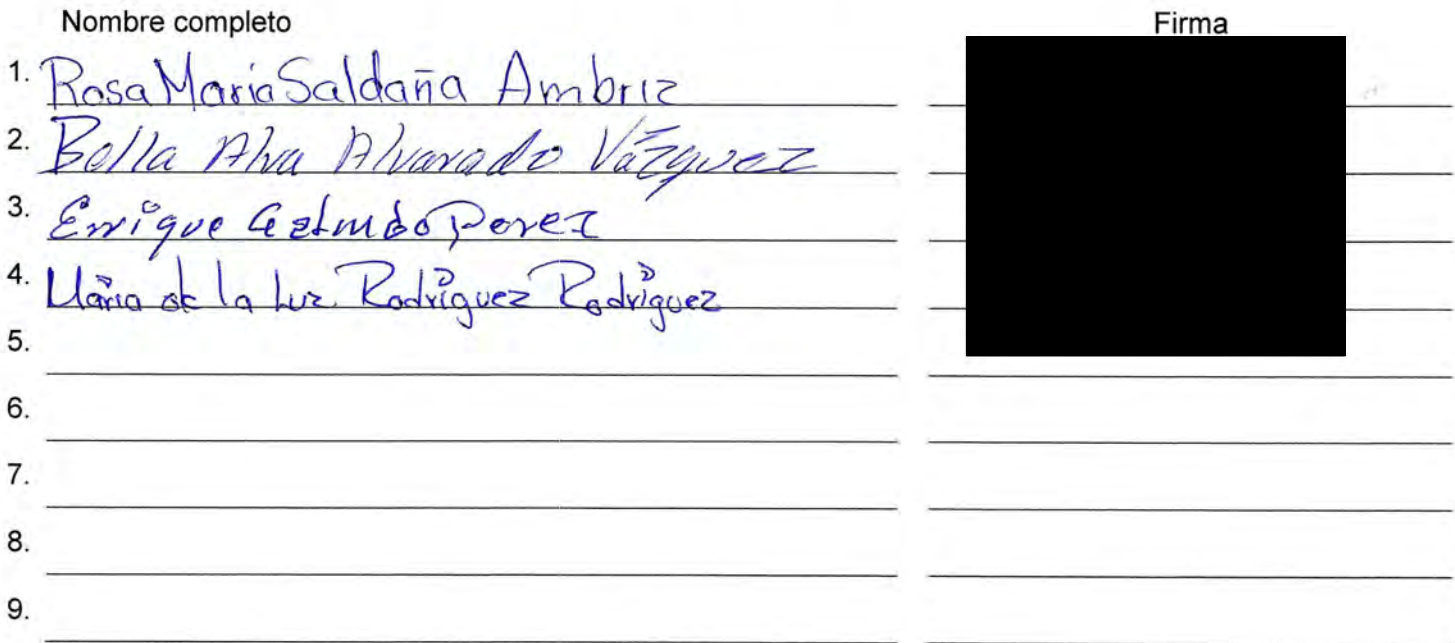 Nombre completo Firma
1. Rosa Maria Saldaña Ambriz
2. Bella Alva Alvarado Vázquez
3. Enrique Galindo Perez
4. María de la Luz Rodríguez Rodríguez
5.
6.
7.
8.
9.